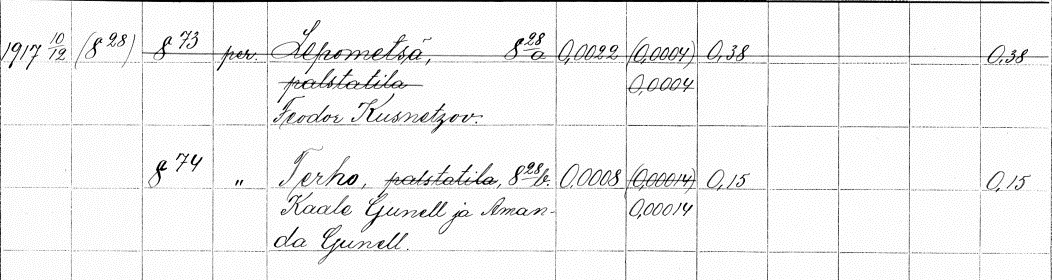 1917 10/12 (8 28) 8 73 per. Lepometsä, 8 28/a 0,0022 (0,0004) 0,38 0,38
palstatila 0,0004
Feodor Kusnetzov.
8 74 " Terho, palstatila, 8 28/b. 0,0008 (0,00014) 0,15 0,15
Kaale Gunell ja Aman-
0,00014
da Gunell.